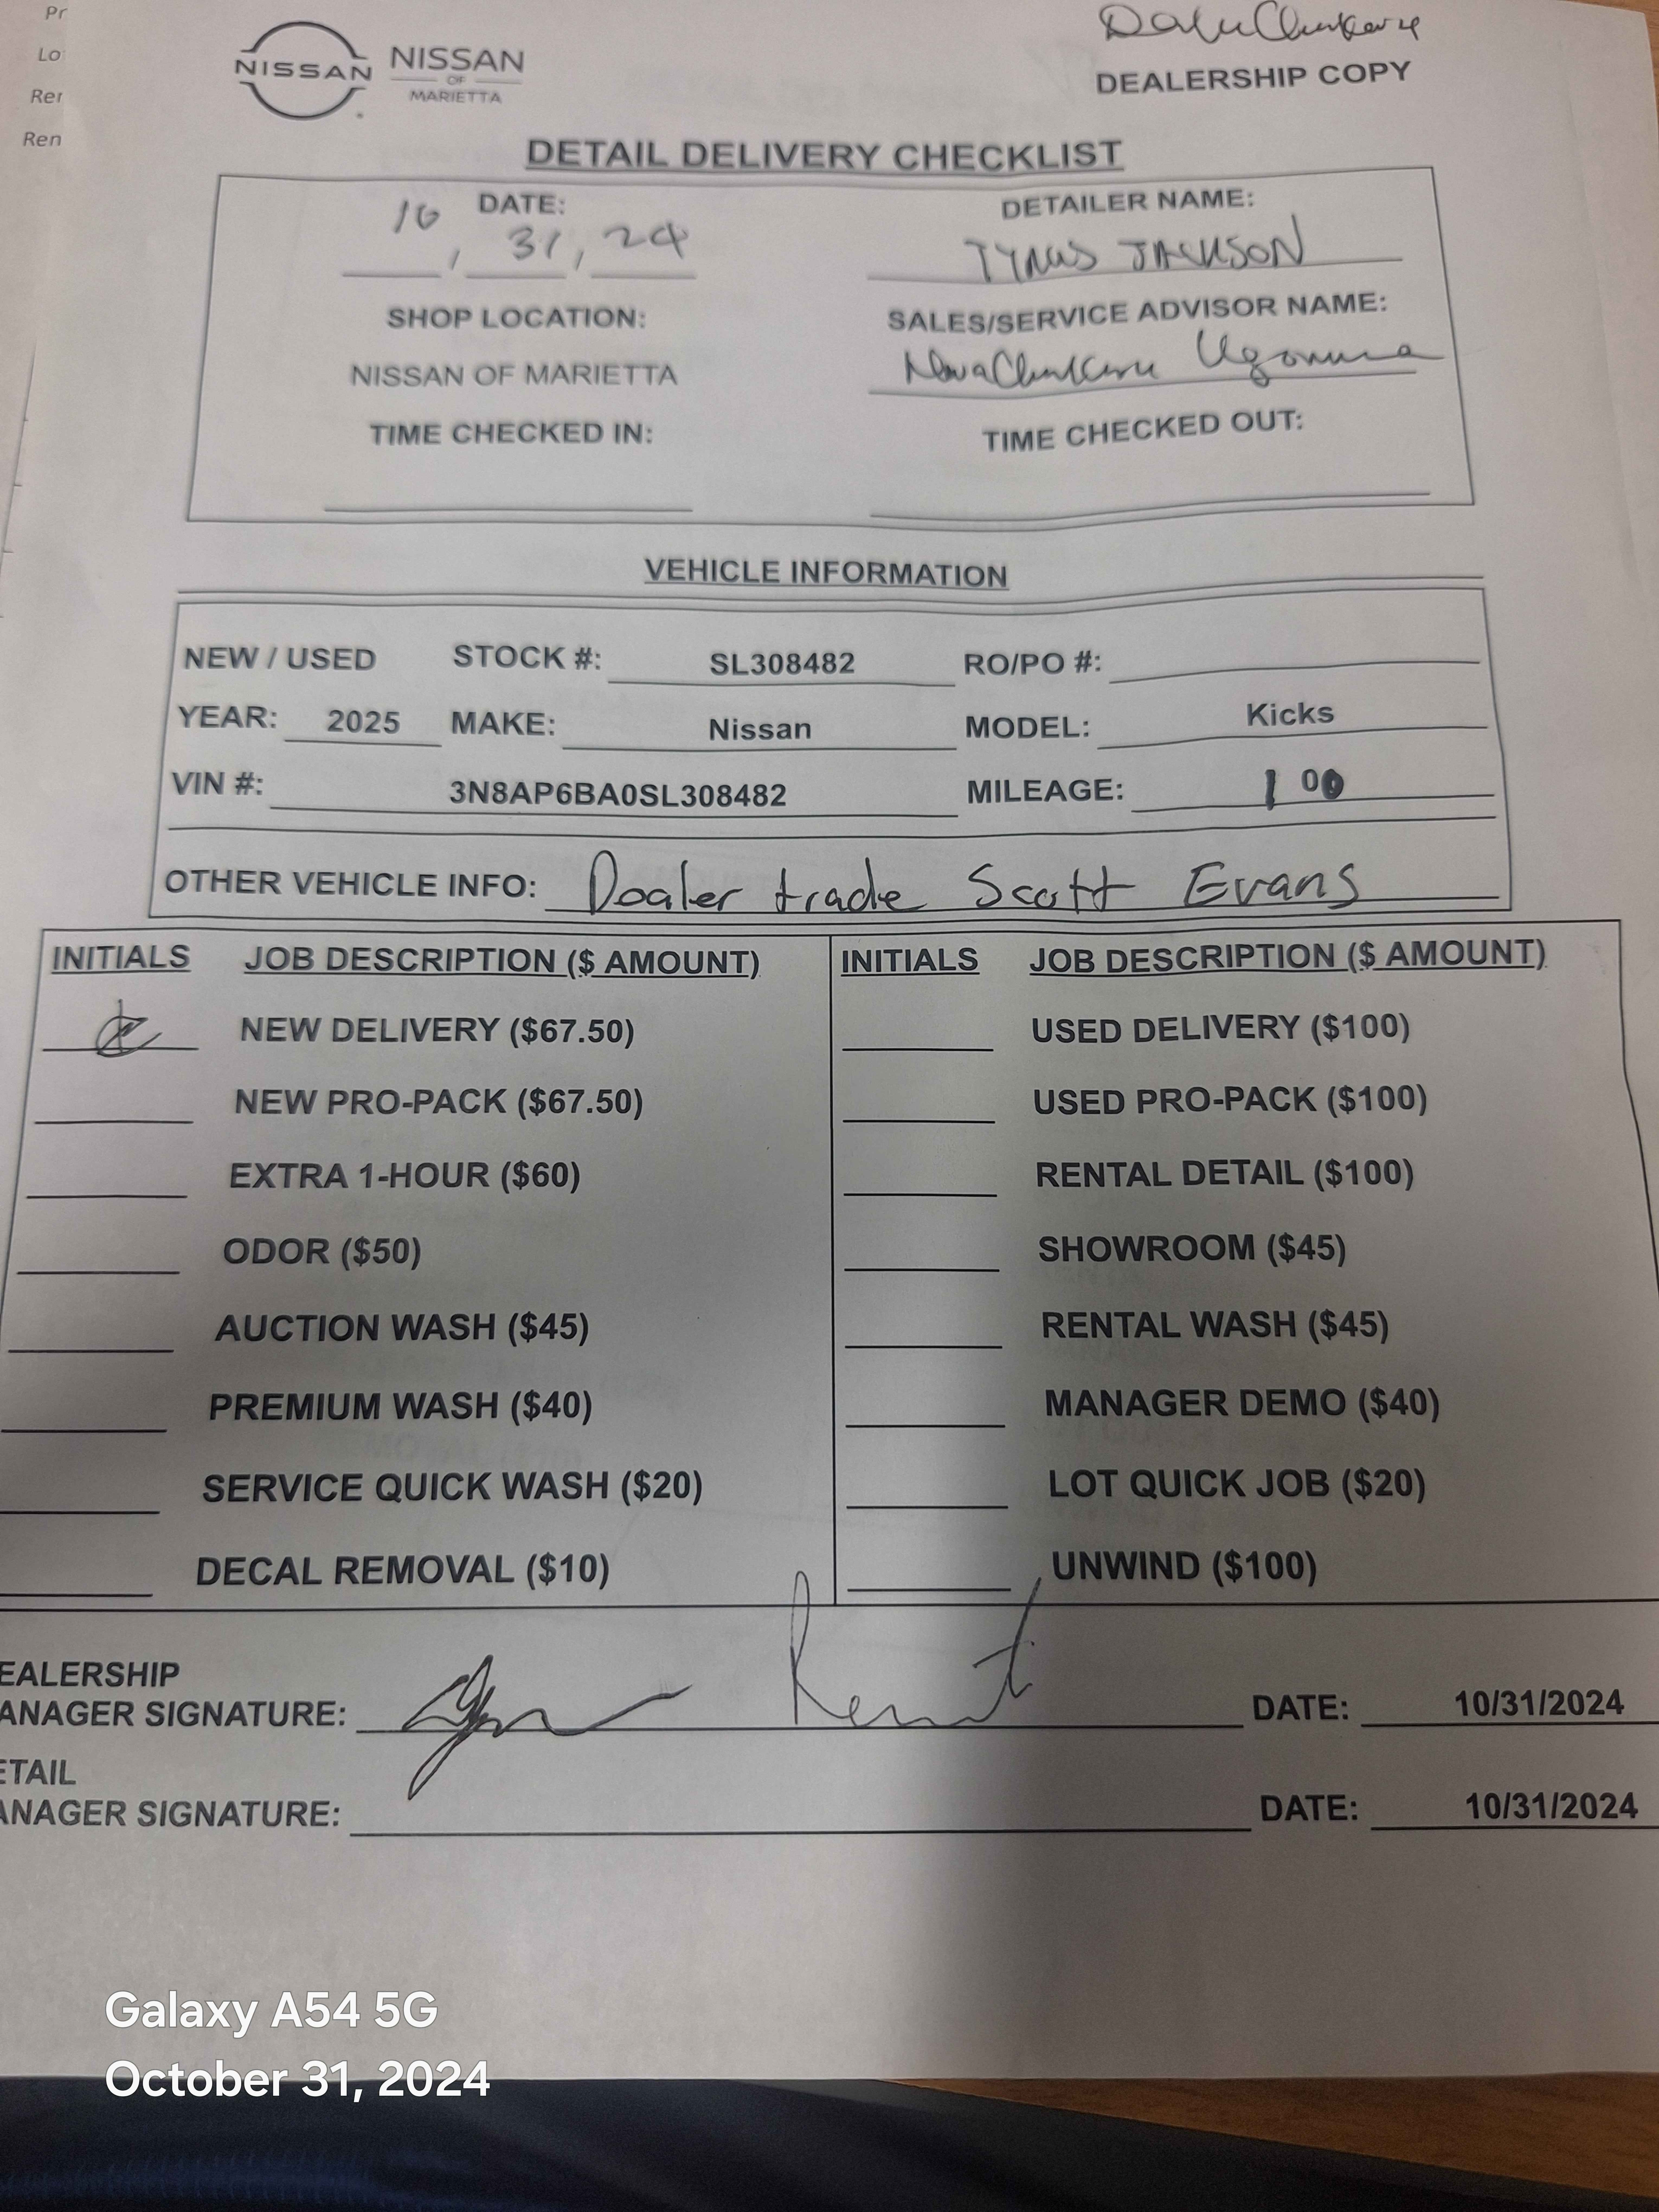 Pr
Lo
Rer
Ren
NISSAN
NISSAN
OF
MARIETTA
DEALERSHIP COPY
DETAIL DELIVERY CHECKLIST
DATE:
10, 31, 24
DETAILER NAME:
TYRUS JACKSON
SHOP LOCATION:
NISSAN OF MARIETTA
SALES/SERVICE ADVISOR NAME:
TIME CHECKED IN:
TIME CHECKED OUT:
VEHICLE INFORMATION
NEW / USED STOCK #: SL308482 RO/PO #:
YEAR: 2025 MAKE: Nissan MODEL: Kicks
VIN #: 3N8AP6BA0SL308482 MILEAGE: 100
OTHER VEHICLE INFO: Dealer trade Scott Evans
INITIALS JOB DESCRIPTION ($ AMOUNT) INITIALS JOB DESCRIPTION ($ AMOUNT)
NEW DELIVERY ($67.50) USED DELIVERY ($100)
NEW PRO-PACK ($67.50) USED PRO-PACK ($100)
EXTRA 1-HOUR ($60) RENTAL DETAIL ($100)
ODOR ($50) SHOWROOM ($45)
AUCTION WASH ($45) RENTAL WASH ($45)
PREMIUM WASH ($40) MANAGER DEMO ($40)
SERVICE QUICK WASH ($20) LOT QUICK JOB ($20)
DECAL REMOVAL ($10) UNWIND ($100)
EALERSHIP
ANAGER SIGNATURE: DATE: 10/31/2024
ETAIL
ANAGER SIGNATURE: DATE: 10/31/2024
Galaxy A54 5G
October 31, 2024